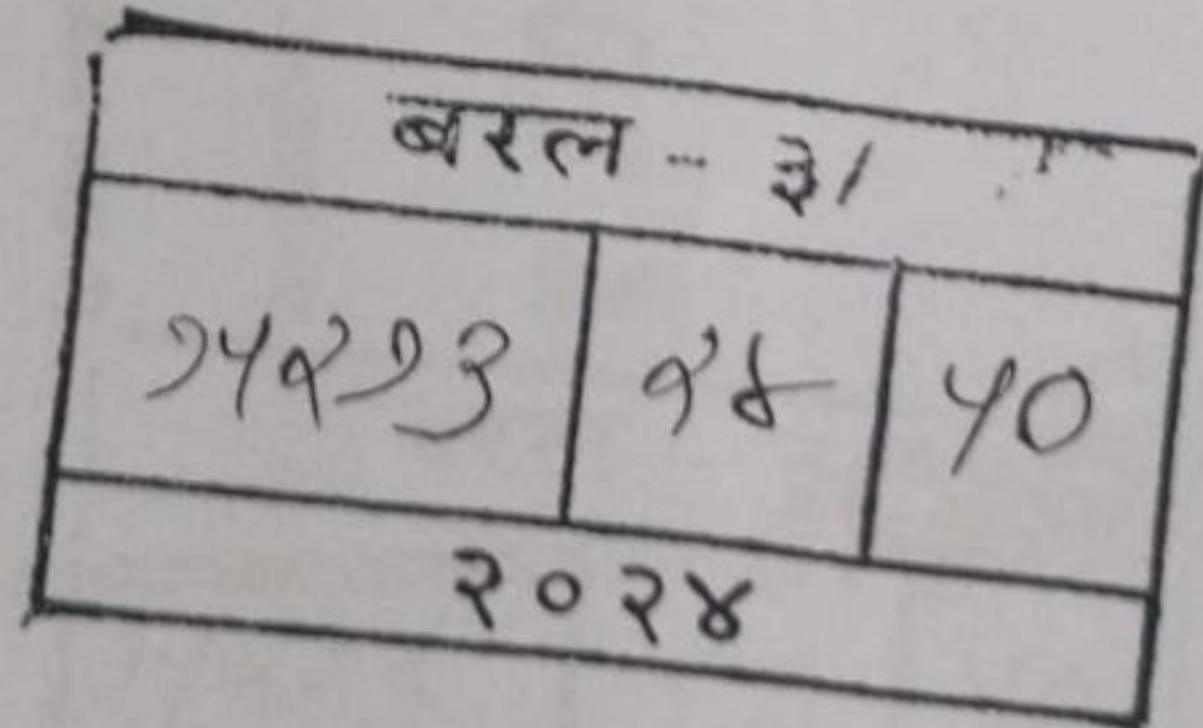 बरल - ३/
१५२१३ २४ ५०
२०२४